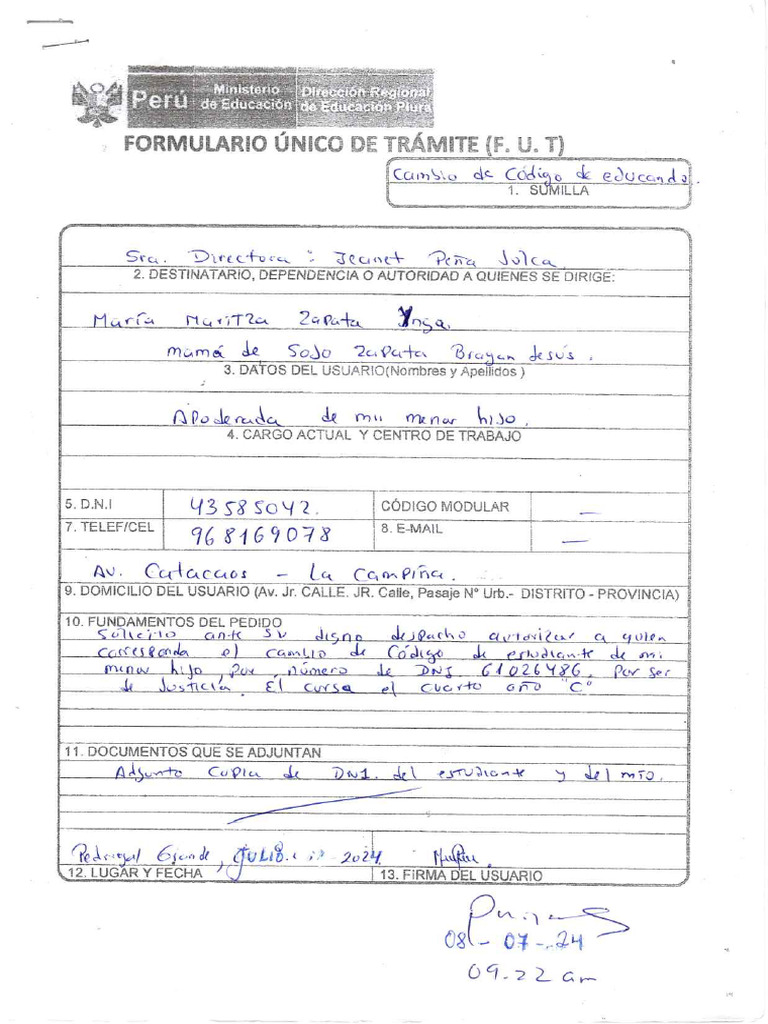 Perú
Ministerio de Educación
Dirección Regional de Educación Piura
FORMULARIO ÚNICO DE TRÁMITE (F. U. T)
Cambio de Código de educando.
1. SUMILLA
Sra. Directora : Jeanet Peña Julca
2. DESTINATARIO, DEPENDENCIA O AUTORIDAD A QUIENES SE DIRIGE:
María Maritza Zapata Ynga.
mamá de Sojo Zapata Brayan Jesús.
3. DATOS DEL USUARIO(Nombres y Apellidos )
Apoderada de mii menor hijo.
4. CARGO ACTUAL Y CENTRO DE TRABAJO
5. D.N.I 43585042. CÓDIGO MODULAR —
7. TELEF/CEL 968169078 8. E-MAIL —
Av. Catacaos - La Campiña.
9. DOMICILIO DEL USUARIO (Av. Jr. CALLE. JR. Calle, Pasaje N° Urb.- DISTRITO - PROVINCIA)
10. FUNDAMENTOS DEL PEDIDO
Solicito ante su digno despacho autorizar a quien
corresponda el cambio de Código de estudiante de mi
menor hijo, por número de DNI 61026486. Por ser
de Justicia. El cursa el cuarto año "C"
11. DOCUMENTOS QUE SE ADJUNTAN
Adjunto copia de DNI. del estudiante y del mío.
Pedregal Grande, JULIO 2024
12. LUGAR Y FECHA 13. FIRMA DEL USUARIO
08 - 07 - 24
09.22 am